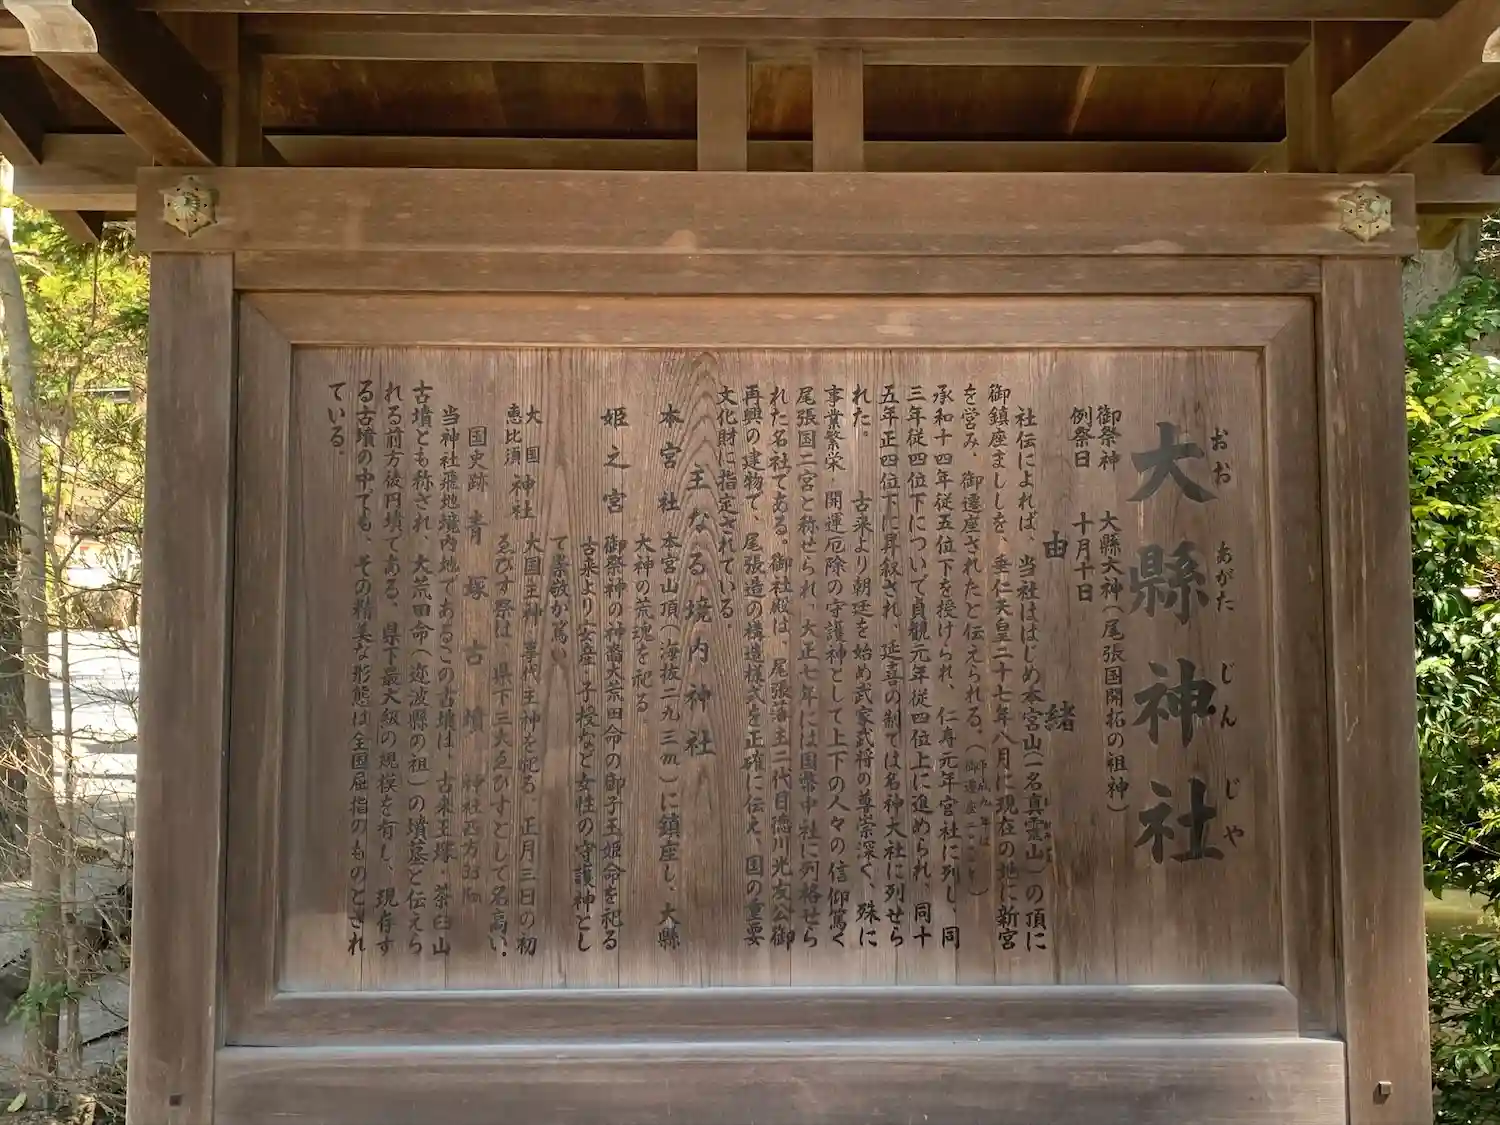 大縣神社
おお あがた じん じや
御祭神 大縣大神(尾張国開拓の祖神)
例祭日 十月十日
由緒
社伝によれば、当社ははじめ本宮山(一名真霊山)の頂に
御鎮座ましましを、垂仁天皇二十七年八月に現在の地に新宮
を営み、御遷座されたと伝えられる。(
承和十四年従五位下を授けられ、仁寿元年官社に列し、同
三年従四位下について貞観元年従四位上に進められ、同十
五年正四位下に昇叙され、延喜の制では名神大社に列せら
れた。 古来より朝廷を始め武家武将の尊崇深く、殊に
事業繁栄・開運厄除の守護神として上下の人々の信仰篤く
尾張国二宮と称せられ、大正七年には国幣中社に列格せら
れた名社である。御社殿は、尾張藩主二代目徳川光友公御
再興の建物で、尾張造の構造様式を正確に伝え、国の重要
文化財に指定されている。
主なる境内神社
本宮社 本宮山頂(海抜二九三m)に鎮座し、大縣
大神の荒魂を祀る。
姫之宮 御祭神の神裔大荒田命の御子玉姫命を祀る
古来より安産・子授など女性の守護神とし
て崇敬が篤い
大国恵比須神社 大国主神、事代主神を祀る、正月三日の初
ゑびす祭は、県下三大ゑびすとして名高い。
国史跡 青塚古墳 神社西方3.3Km
当神社飛地境内地であるこの古墳は、古来王塚・茶臼山
古墳とも称され、大荒田命(迩波縣の祖)の墳墓と伝えら
れる前方後円墳である、県下最大級の規模を有し、現存す
る古墳の中でも、その精美な形態は全国屈指のものとされ
ている。